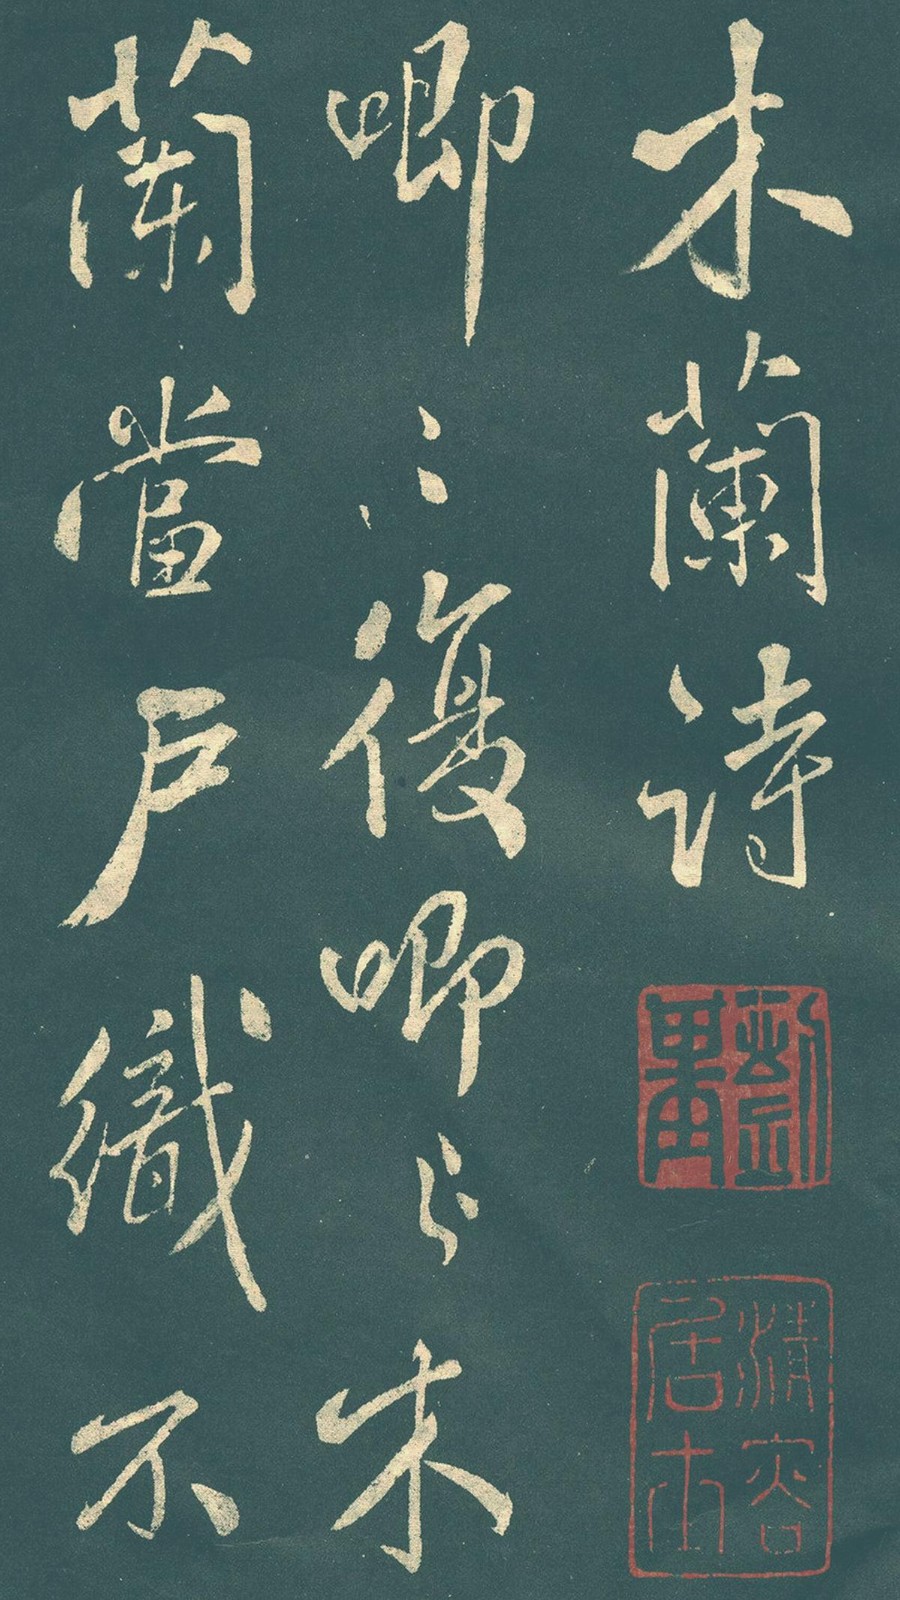 木蘭詩
唧〻復唧〻木
蘭當戶織不
清容居